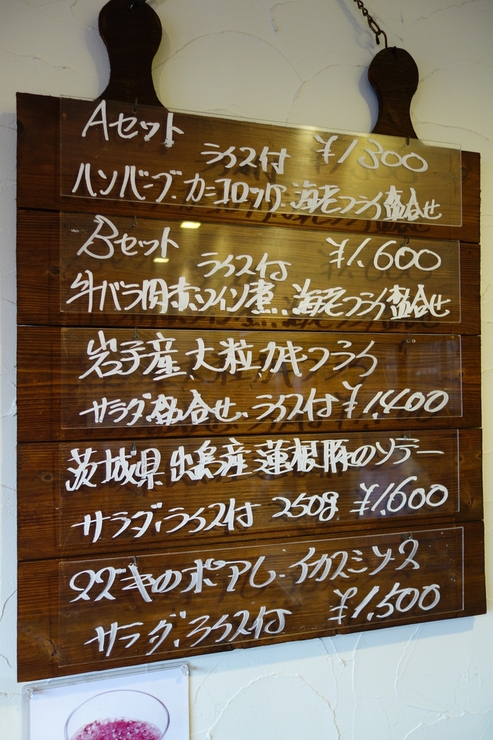 Aセット
ライス付 ¥1,300
ハンバーグ、カニコロッケ、海老フライ盛合せ
Bセット
ライス付 ¥1,600
牛バラ肉赤ワイン煮、海老フライ盛合せ
岩手産大粒カキフライ
サラダ盛合せ、ライス付 ¥1,400
茨城県出島産蓮根豚のソテー
サラダ、ライス付 250g ¥1,600
スズキのポアレ・イカスミソース
サラダ、ライス付 ¥1,500